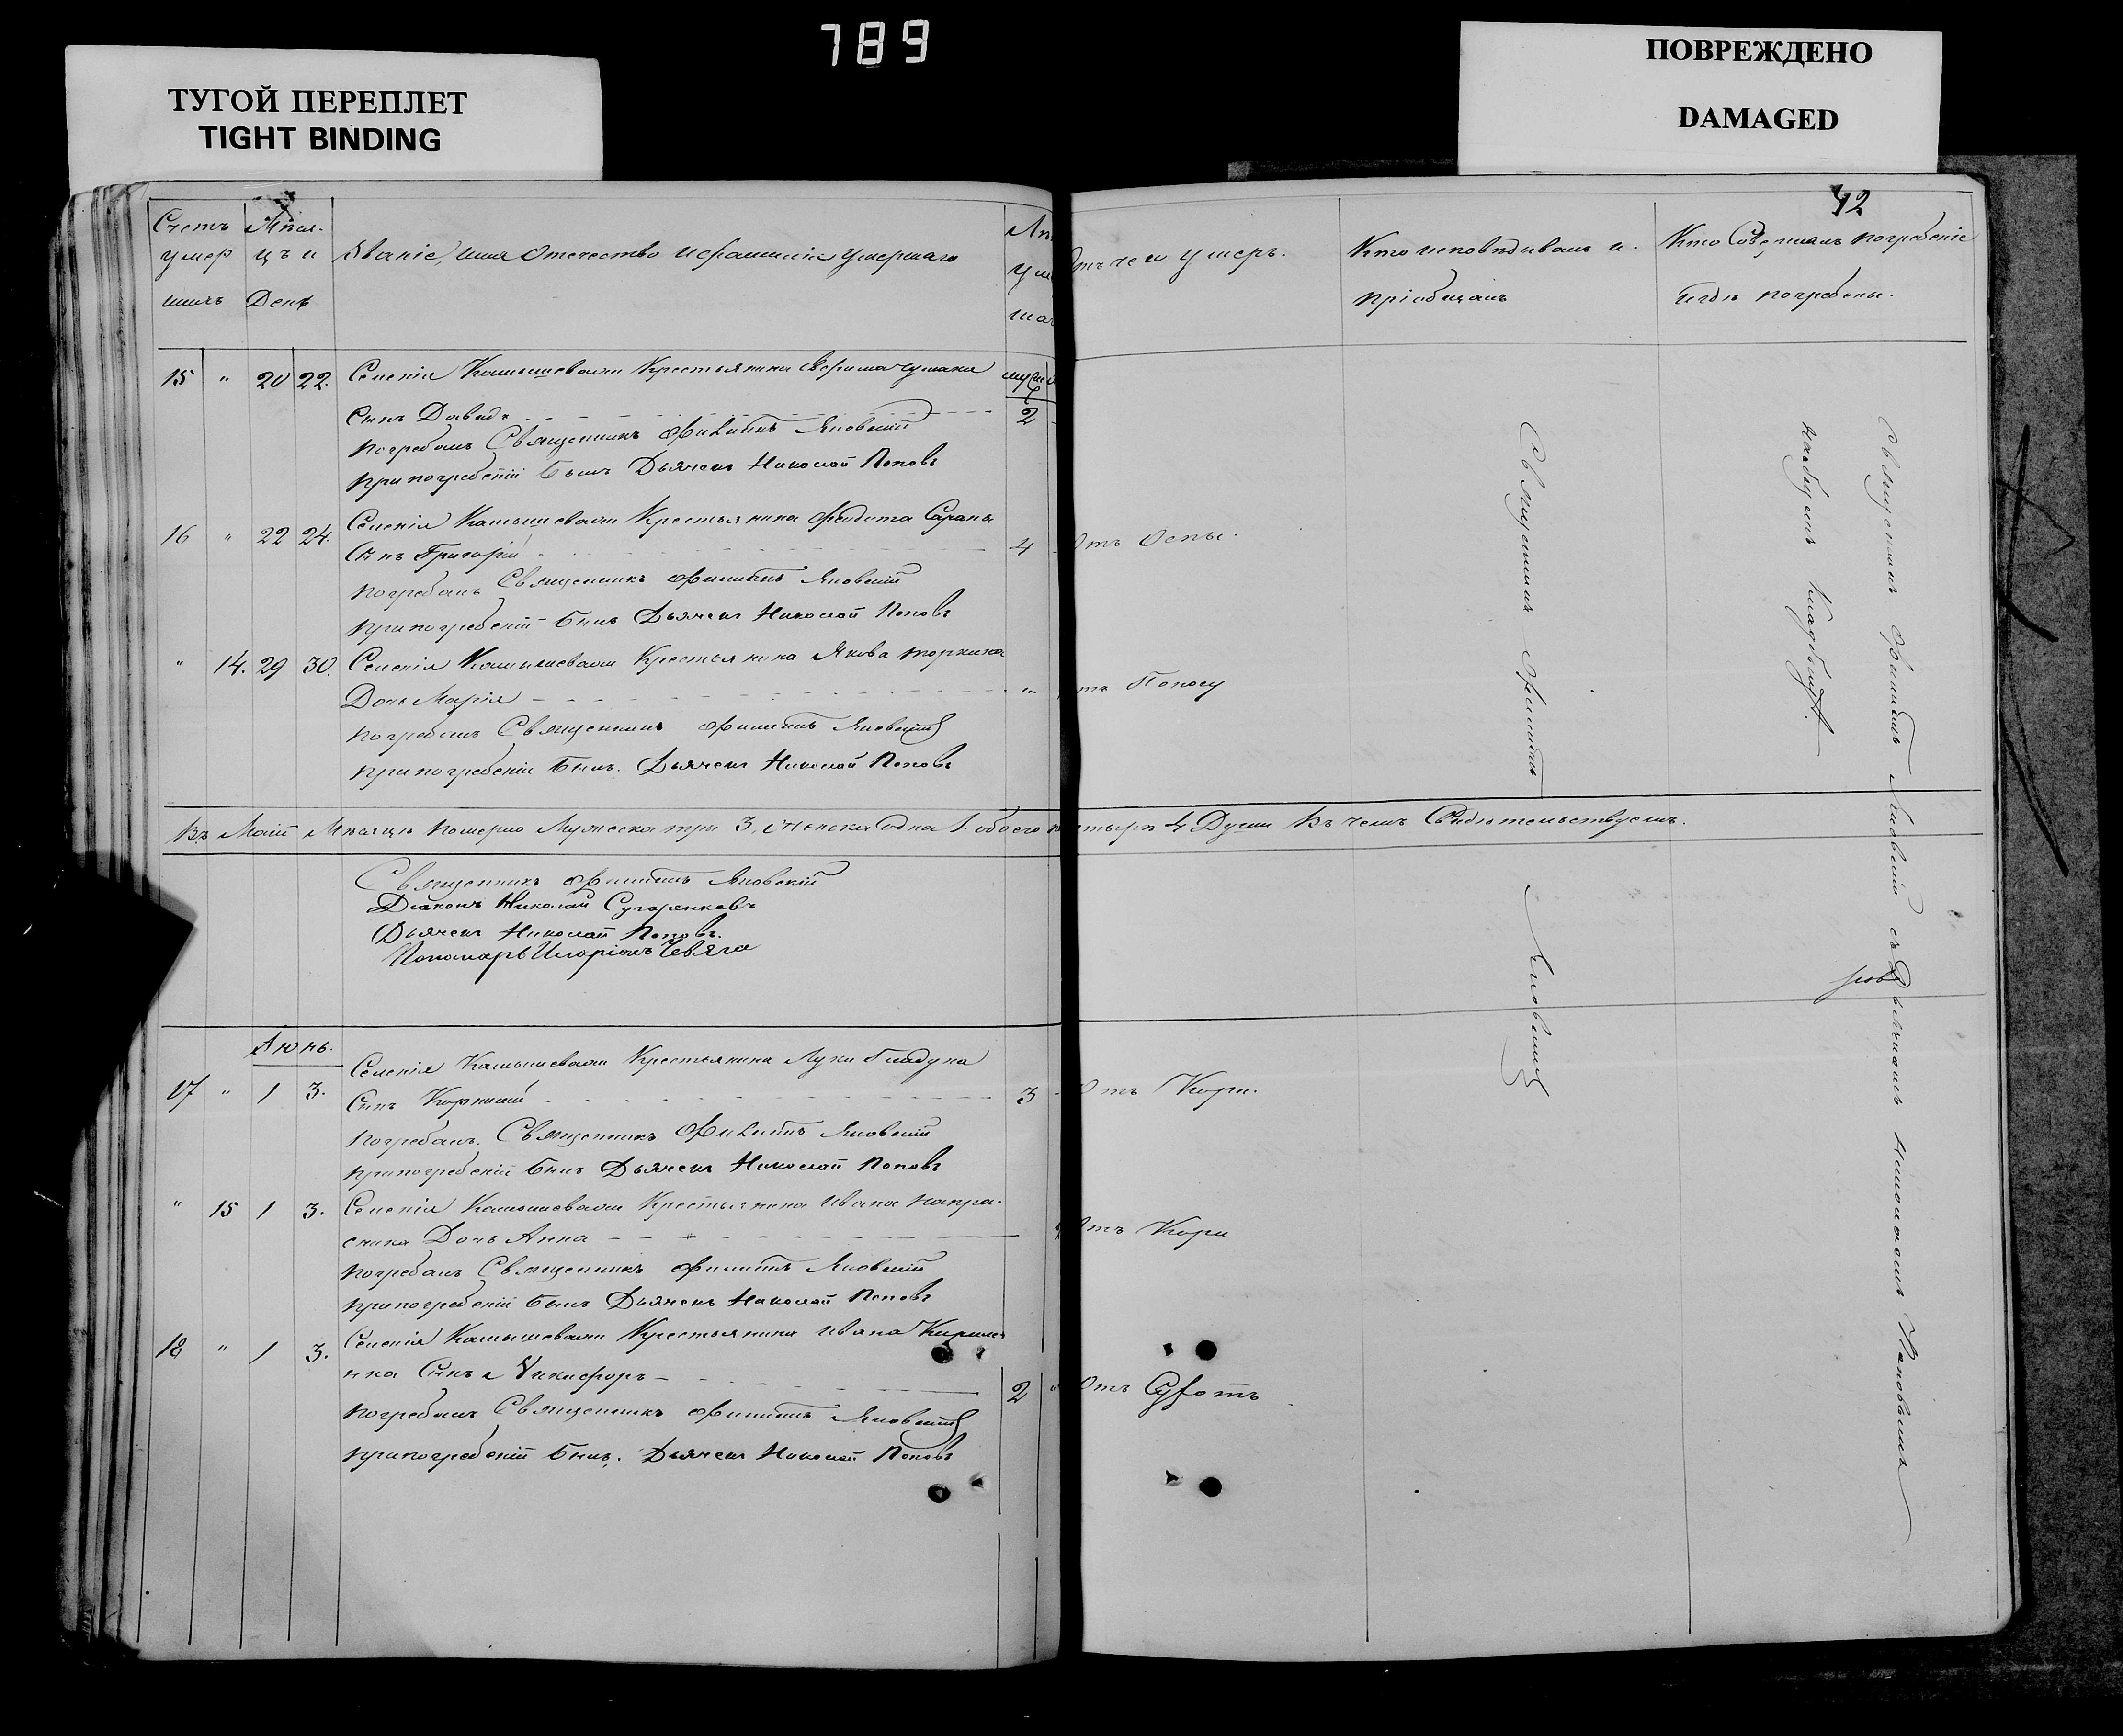 789
ТУГОЙ ПЕРЕПЛЕТ
TIGHT BINDING
ПОВРЕЖДЕНО
DAMAGED
42
Счетъ умер шихъ
Мѣся- цъ и День
Званіе, имя отечество и фамилія умершаго
Отъ чего умеръ.
Кто исповѣдывалъ и пріобщалъ
Кто Совершалъ погребеніе и гдѣ погребены.
15 " 20 22. Селенія Камышевахи Крестьянина
Сынъ Давидъ 2
погребалъ Священникъ Филиппъ Яновскій
при погребеніи былъ Дьячекъ Николай Поповъ
16 " 22 24. Селенія Камышевахи Крестьянина
Сынъ Григорій 4 Отъ Оспы.
погребалъ Священникъ Филиппъ Яновскій
при погребеніи былъ Дьячекъ Николай Поповъ
" 14. 29 30. Селенія Камышевахи Крестьянина Якова
Дочь Марія " Отъ Поносу
погребалъ Священникъ Филиппъ Яновскій
при погребеніи былъ. Дьячекъ Николай Поповъ
Въ Маіи Мѣсяцѣ померло Мужеска три 3, Женска одна 1. обоего четыри 4 Души Въ чемъ Свидѣтельствуемъ.
Священникъ Филиппъ Яновскій
Діаконъ Николай
Дьячекъ Николай Поповъ.
Пономарь Иларіонъ
Іюнь.
Селенія Камышевахи Крестьянина Луки Гладуна
17 " 1 3. Сынъ Корнилій 3 Отъ Кори.
погребалъ. Священникъ Филиппъ Яновскій
при погребеніи былъ Дьячекъ Николай Поповъ
" 15 1 3. Селенія Камышевахи Крестьянина Ивана
Дочь Анна Отъ Кори
погребалъ Священникъ Филиппъ Яновскій
при погребеніи былъ Дьячекъ Николай Поповъ
18 " 1 3. Селенія Камышевахи Крестьянина Ивана
нка Сынъ Никифоръ 2 Отъ
погребалъ Священникъ Филиппъ Яновскій
при погребеніи былъ. Дьячекъ Николай Поповъ
Священникъ Филиппъ Яновскій
Священникъ Филиппъ Яновскій съ Дьячкомъ Николаемъ Поповымъ
на общемъ кладбищѣ.